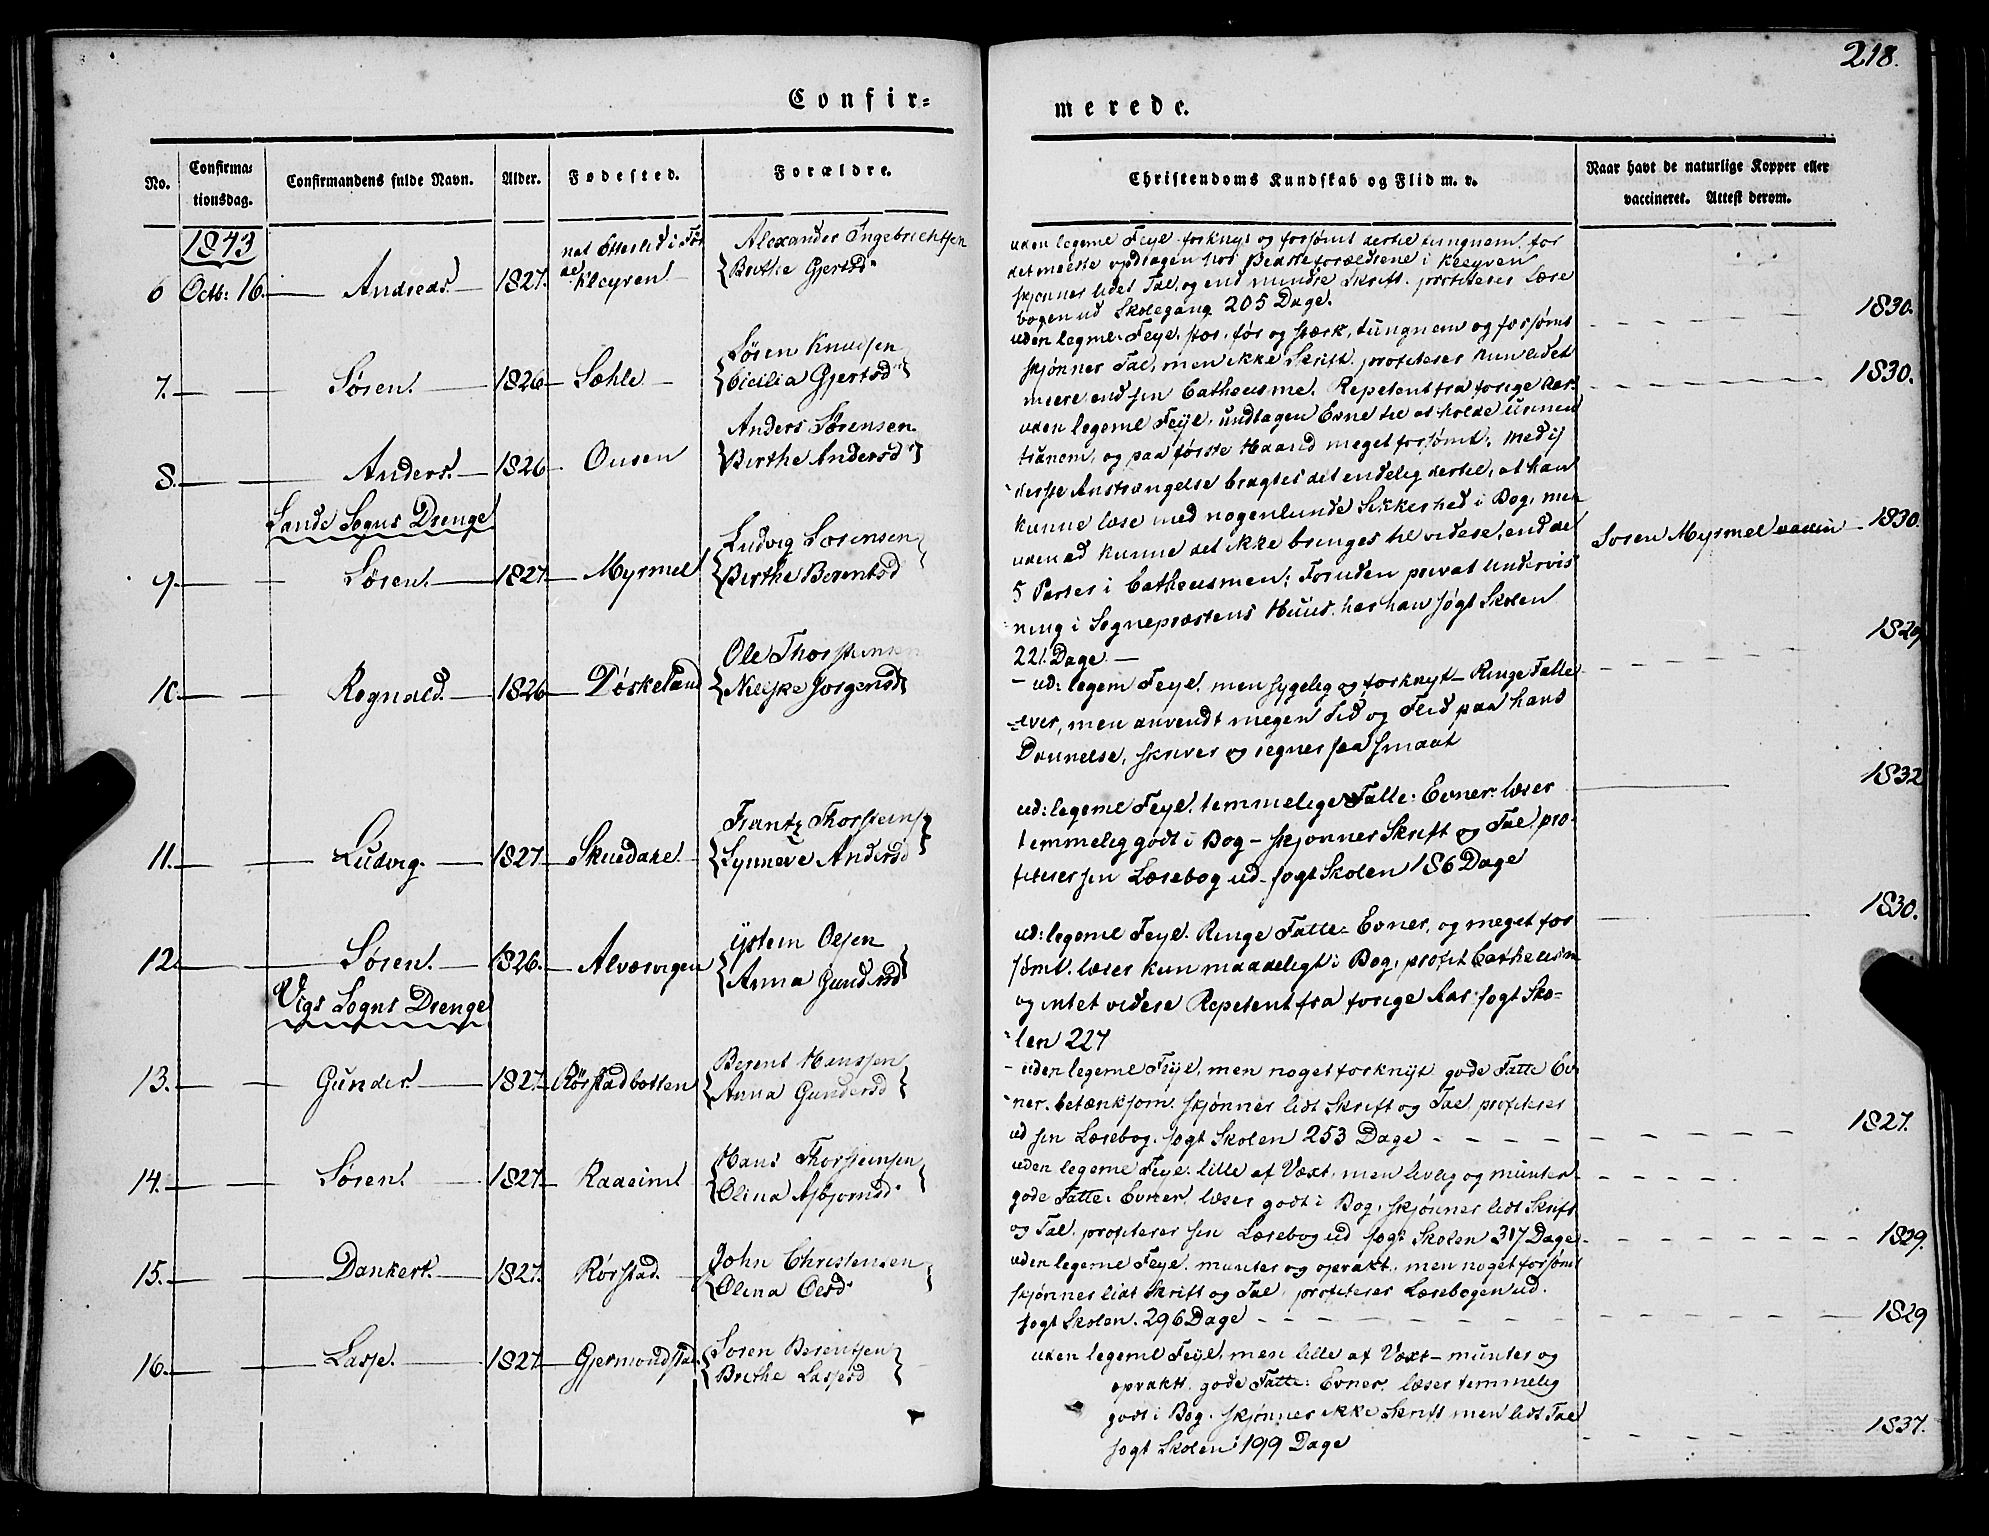 218.
Confir-
merede.
No.
Confirma-
tionsdag.
Confirmandens fulde Navn.
Alder.
Fødested.
Forældre.
Christendoms Kundskab og Flid m. v.
Naar havt de naturlige Kopper eller
vaccineret. Attest derom.
1843
6 Octb: 16. Andreas. 1827. Kleyven
Alexander Ingebrichtsen
Birthe Gjertsd
uden legeme Feyl forknyt og forsømt dertil tungnem, for
det meeste opdragen hos Bedsteforældrene i Kleyven
skjønner lidet Tal, og end mindre Skrift. profiterer Læse
bogen ud Skolegang 205 Dage.
1830.
7. Søren. 1826 Sæhle
Søren Knudsen
Cicilia Gjertsd
uden legme Feyl, stor, før og stærk, tungnem og forsømt
skjønner Tal, men ikke Skrift. profiterer kun lidet
meere end sin Catheusme. Repetent fra forige Aar
1830.
8. Anders. 1826 Ousen
Anders Sørensen
Birthe Andersd
uden legeme Feyl, undtagen Evne til at holde Urinen
tranem, og paa første Haand meget forsømt; med ij
derste Anstrængelse bragtes det endelig dertil, at han
kunne læse med nogenlunde Sikkerhed i Bog, men
uden ad kunne det ikke bringes til videre, end de
5 Parter i Catheusmen; Foruden privat undervis
ning i Sognepræstens Huus, har han søgt Skolen
221 Dage
1830.
Sande Sogns Drenge
9. Søren. 1827. Myrmel
Ludvig Sorensen
Birthe Berentsd
Soren Myrmel vaccin
1829
10. Rognald. 1826 Døskeland
Ole Thorsteinsen
Neljke Jorgensd
ud: legem Feyl, men sygelig og forknyt Ringe Fatte
ever, men anvendt megen Tid og Flid paa hans
Danelse, skriver og regner saa smaat
1832
11. Ludvig. 1827 Skuedale
Frantz Thorsteins
Synneve Andersd
ud: legeme Feyl. temmelige Fatte: Evner: læser
temmelig godt i Bog - skjønner Skrift og Tal pro-
fiterer sin Læsebog ud - søgt Skolen 186 Dage
1830.
12. Søren. 1826. Alværvigen
Ystein Olsen
Anna Gundersd
ud: legeme Feyl. Ringe Fatte: Evner, og meget for
sømt. læser kun maadeligt i Bog, profit Catheusm
og intet videre Repetent fra forige Aar søgt Sko-
len 227
Vigs Sogns Drenge
13. Gunder. 1827. Rørstadbotten
Berent Hanssen
Anna Gundersd
uden legeme Feyl, men noget forknyt gode Fatte Ev
ner. betænksom. skjønner lidt Skrift og Tal. profiterer
ud sin Læsebog. søgt Skolen 253 Dage
1827.
14. Søren. 1827. Raaeim
Hans Thorsteinsen
Olina Asbjornsd
uden legeme Feyl. lille af Væxt, men livlig og munter
gode Fatte: Evner. læser godt i Bog, skjønner lidt Skrift
og Tal. profiterer sin Læsebog ud søgt Skolen 317 Dage
1829.
15. Dankert. 1827. Rørstad.
John Christensen
Olina Olsd
uden legeme Feyl. munter og oprakt, men noget forsømt
skjønner lidt Skrift og Tal. profiterer Læsebogen ud.
søgt Skolen. 296 Dage
1829
16. Lasse. 1827. Gjermondstad
Soren Berentsen
Brithe Lassesd
uden legeme Feyl, men lille af Væxt - munter og
oprakt. gode Fatte: Evner. læser temmelig
godt i Bog. skjønner ikke Skrift men lidt Tal
søgt Skolen 199 Dage
1837.